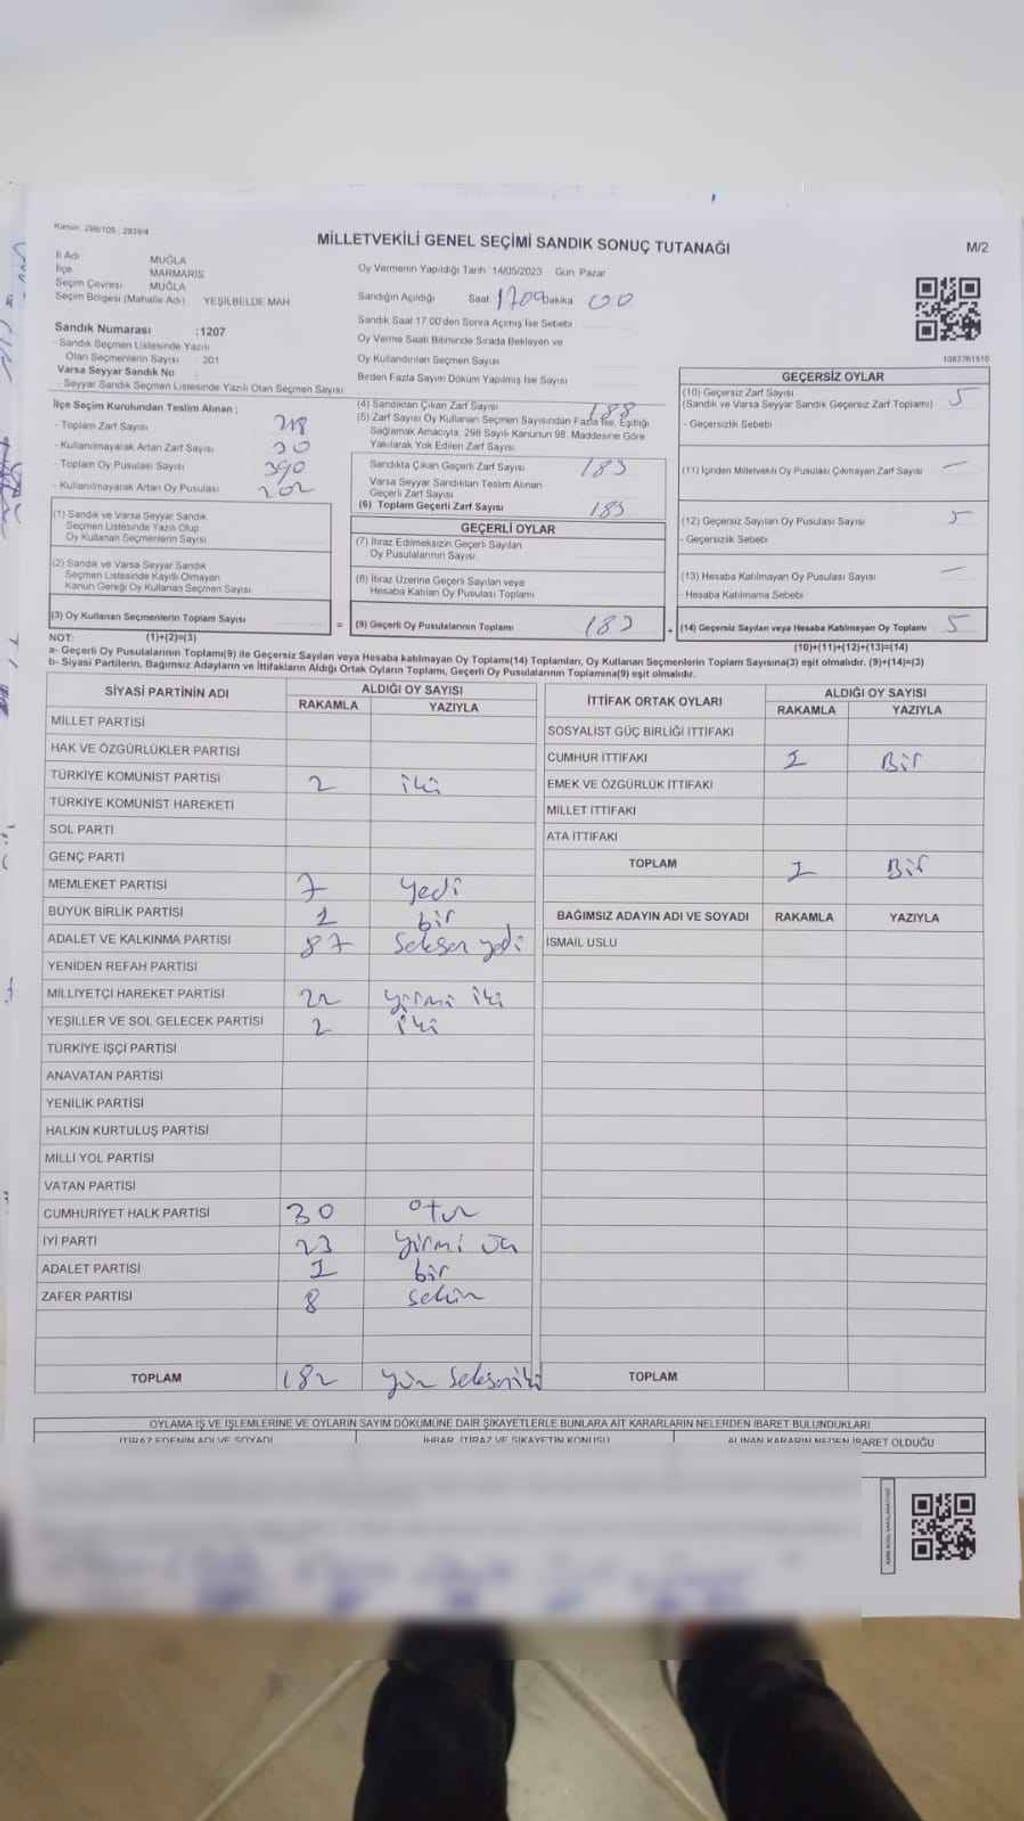 MİLLETVEKİLİ GENEL SEÇİMİ SANDIK SONUÇ TUTANAĞI
M/2
İl Adı MUĞLA
İlçe MARMARİS
Seçim Çevresi MUĞLA
Seçim Bölgesi (Mahalle Adı) YEŞİLBELDE MAH
Sandık Numarası :1207
Sandık Seçmen Listesinde Yazılı
Olan Seçmenlerin Sayısı 201
Varsa Seyyar Sandık No
Seyyar Sandık Seçmen Listesinde Yazılı Olan Seçmen Sayısı
Oy Vermenin Yapıldığı Tarih 14/05/2023 Gün Pazar
Sandığın Açıldığı Saat 1700 Dakika 00
Sandık Saat 17:00'den Sonra Açımış İse Sebebi
Oy Verme Saati Bitiminde Sırada Bekleyen ve
Oy Kullandırılan Seçmen Sayısı
Birden Fazla Sayım Döküm Yapılmış İse Sayısı
1083761510
İlçe Seçim Kurulundan Teslim Alınan :
- Toplam Zarf Sayısı 218
- Kullanılmayarak Artan Zarf Sayısı 30
- Toplam Oy Pusulası Sayısı 390
- Kullanılmayarak Artan Oy Pusulası 202
(1) Sandık ve Varsa Seyyar Sandık
Seçmen Listesinde Yazılı Olup
Oy Kullanan Seçmenlerin Sayısı
(2) Sandık ve Varsa Seyyar Sandık
Seçmen Listesinde Kayıtlı Olmayan
Kanun Gereği Oy Kullanan Seçmen Sayısı
(3) Oy Kullanan Seçmenlerin Toplam Sayısı
(4) Sandıktan Çıkan Zarf Sayısı 188
(5) Zarf Sayısı Oy Kullanan Seçmen Sayısından Fazla İse, Eşitliği
Sağlamak Amacıyla, 298 Sayılı Kanunun 98. Maddesine Göre
Yakılarak Yok Edilen Zarf Sayısı
Sandıkta Çıkan Geçerli Zarf Sayısı 183
Varsa Seyyar Sandıktan Teslim Alınan
Geçerli Zarf Sayısı
(6) Toplam Geçerli Zarf Sayısı 183
GEÇERLİ OYLAR
(7) İtiraz Edilmeksizin Geçerli Sayılan
Oy Pusulalarının Sayısı
(8) İtiraz Üzerine Geçerli Sayılan veya
Hesaba Katılan Oy Pusulası Toplamı
= (9) Geçerli Oy Pusulalarının Toplamı 183
GEÇERSİZ OYLAR
(10) Geçersiz Zarf Sayısı 5
(Sandık ve Varsa Seyyar Sandık Geçersiz Zarf Toplamı)
- Geçersizlik Sebebi
(11) İçinden Milletvekili Oy Pusulası Çıkmayan Zarf Sayısı —
(12) Geçersiz Sayılan Oy Pusulası Sayısı 5
- Geçersizlik Sebebi
(13) Hesaba Katılmayan Oy Pusulası Sayısı —
- Hesaba Katılmama Sebebi
+ (14) Geçersiz Sayılan veya Hesaba Katılmayan Oy Toplamı 5
NOT: (1)+(2)=(3) (10)+(11)+(12)+(13)=(14)
a- Geçerli Oy Pusulalarının Toplamı(9) ile Geçersiz Sayılan veya Hesaba katılmayan Oy Toplamı(14) Toplamları, Oy Kullanan Seçmenlerin Toplam Sayısına(3) eşit olmalıdır. (9)+(14)=(3)
b- Siyasi Partilerin, Bağımsız Adayların ve İttifakların Aldığı Ortak Oyların Toplamı, Geçerli Oy Pusulalarının Toplamına(9) eşit olmalıdır.
SİYASİ PARTİNİN ADI ALDIĞI OY SAYISI
RAKAMLA YAZIYLA
MİLLET PARTİSİ
HAK VE ÖZGÜRLÜKLER PARTİSİ
TÜRKİYE KOMÜNİST PARTİSİ 2 iki
TÜRKİYE KOMÜNİST HAREKETİ
SOL PARTİ
GENÇ PARTİ
MEMLEKET PARTİSİ 7 yedi
BÜYÜK BİRLİK PARTİSİ 1 bir
ADALET VE KALKINMA PARTİSİ 87 seksen yedi
YENİDEN REFAH PARTİSİ
MİLLİYETÇİ HAREKET PARTİSİ 22 yirmi iki
YEŞİLLER VE SOL GELECEK PARTİSİ 2 iki
TÜRKİYE İŞÇİ PARTİSİ
ANAVATAN PARTİSİ
YENİLİK PARTİSİ
HALKIN KURTULUŞ PARTİSİ
MİLLİ YOL PARTİSİ
VATAN PARTİSİ
CUMHURİYET HALK PARTİSİ 30 otuz
İYİ PARTİ 23 yirmi üç
ADALET PARTİSİ 1 bir
ZAFER PARTİSİ 8 sekiz
TOPLAM 182 yüz seksen iki
İTTİFAK ORTAK OYLARI ALDIĞI OY SAYISI
RAKAMLA YAZIYLA
SOSYALİST GÜÇ BİRLİĞİ İTTİFAKI
CUMHUR İTTİFAKI 1 Bir
EMEK VE ÖZGÜRLÜK İTTİFAKI
MİLLET İTTİFAKI
ATA İTTİFAKI
TOPLAM 1 Bir
BAĞIMSIZ ADAYIN ADI VE SOYADI RAKAMLA YAZIYLA
İSMAİL USLU
TOPLAM
OYLAMA İŞ VE İŞLEMLERİNE VE OYLARIN SAYIM DÖKÜMÜNE DAİR ŞİKAYETLERLE BUNLARA AİT KARARLARIN NELERDEN İBARET BULUNDUKLARI
İTİRAZ EDENİN ADI VE SOYADI İHBAR, İTİRAZ VE ŞİKAYETİN KONUSU ALINAN KARARIN NEDEN İBARET OLDUĞU